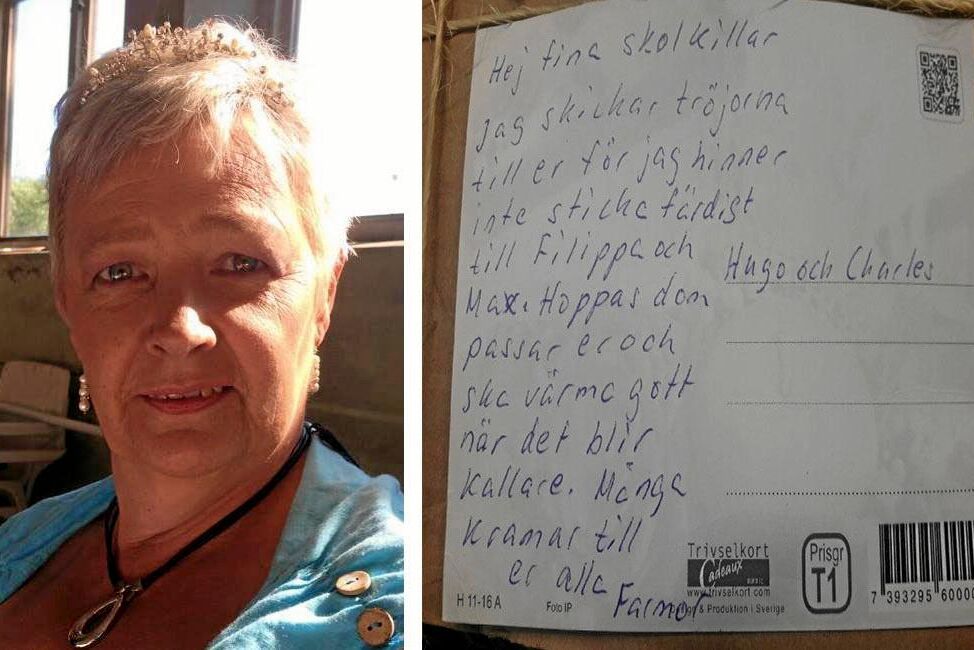 Hej fina skolkillar
Jag skickar tröjorna
till er för jag hinner
inte sticka färdigt
till Filippa och
Max. Hoppas dom
passar er och
ska värma gott
när det blir
kallare. Många
Kramar till
er alla
Farmor
Hugo och Charles
Trivselkort
Cadeaux
www.trivselkort.com
Design & Produktion i Sverige
Prisgr
T1
H 11-16 A
Foto IP
7 393295 60000